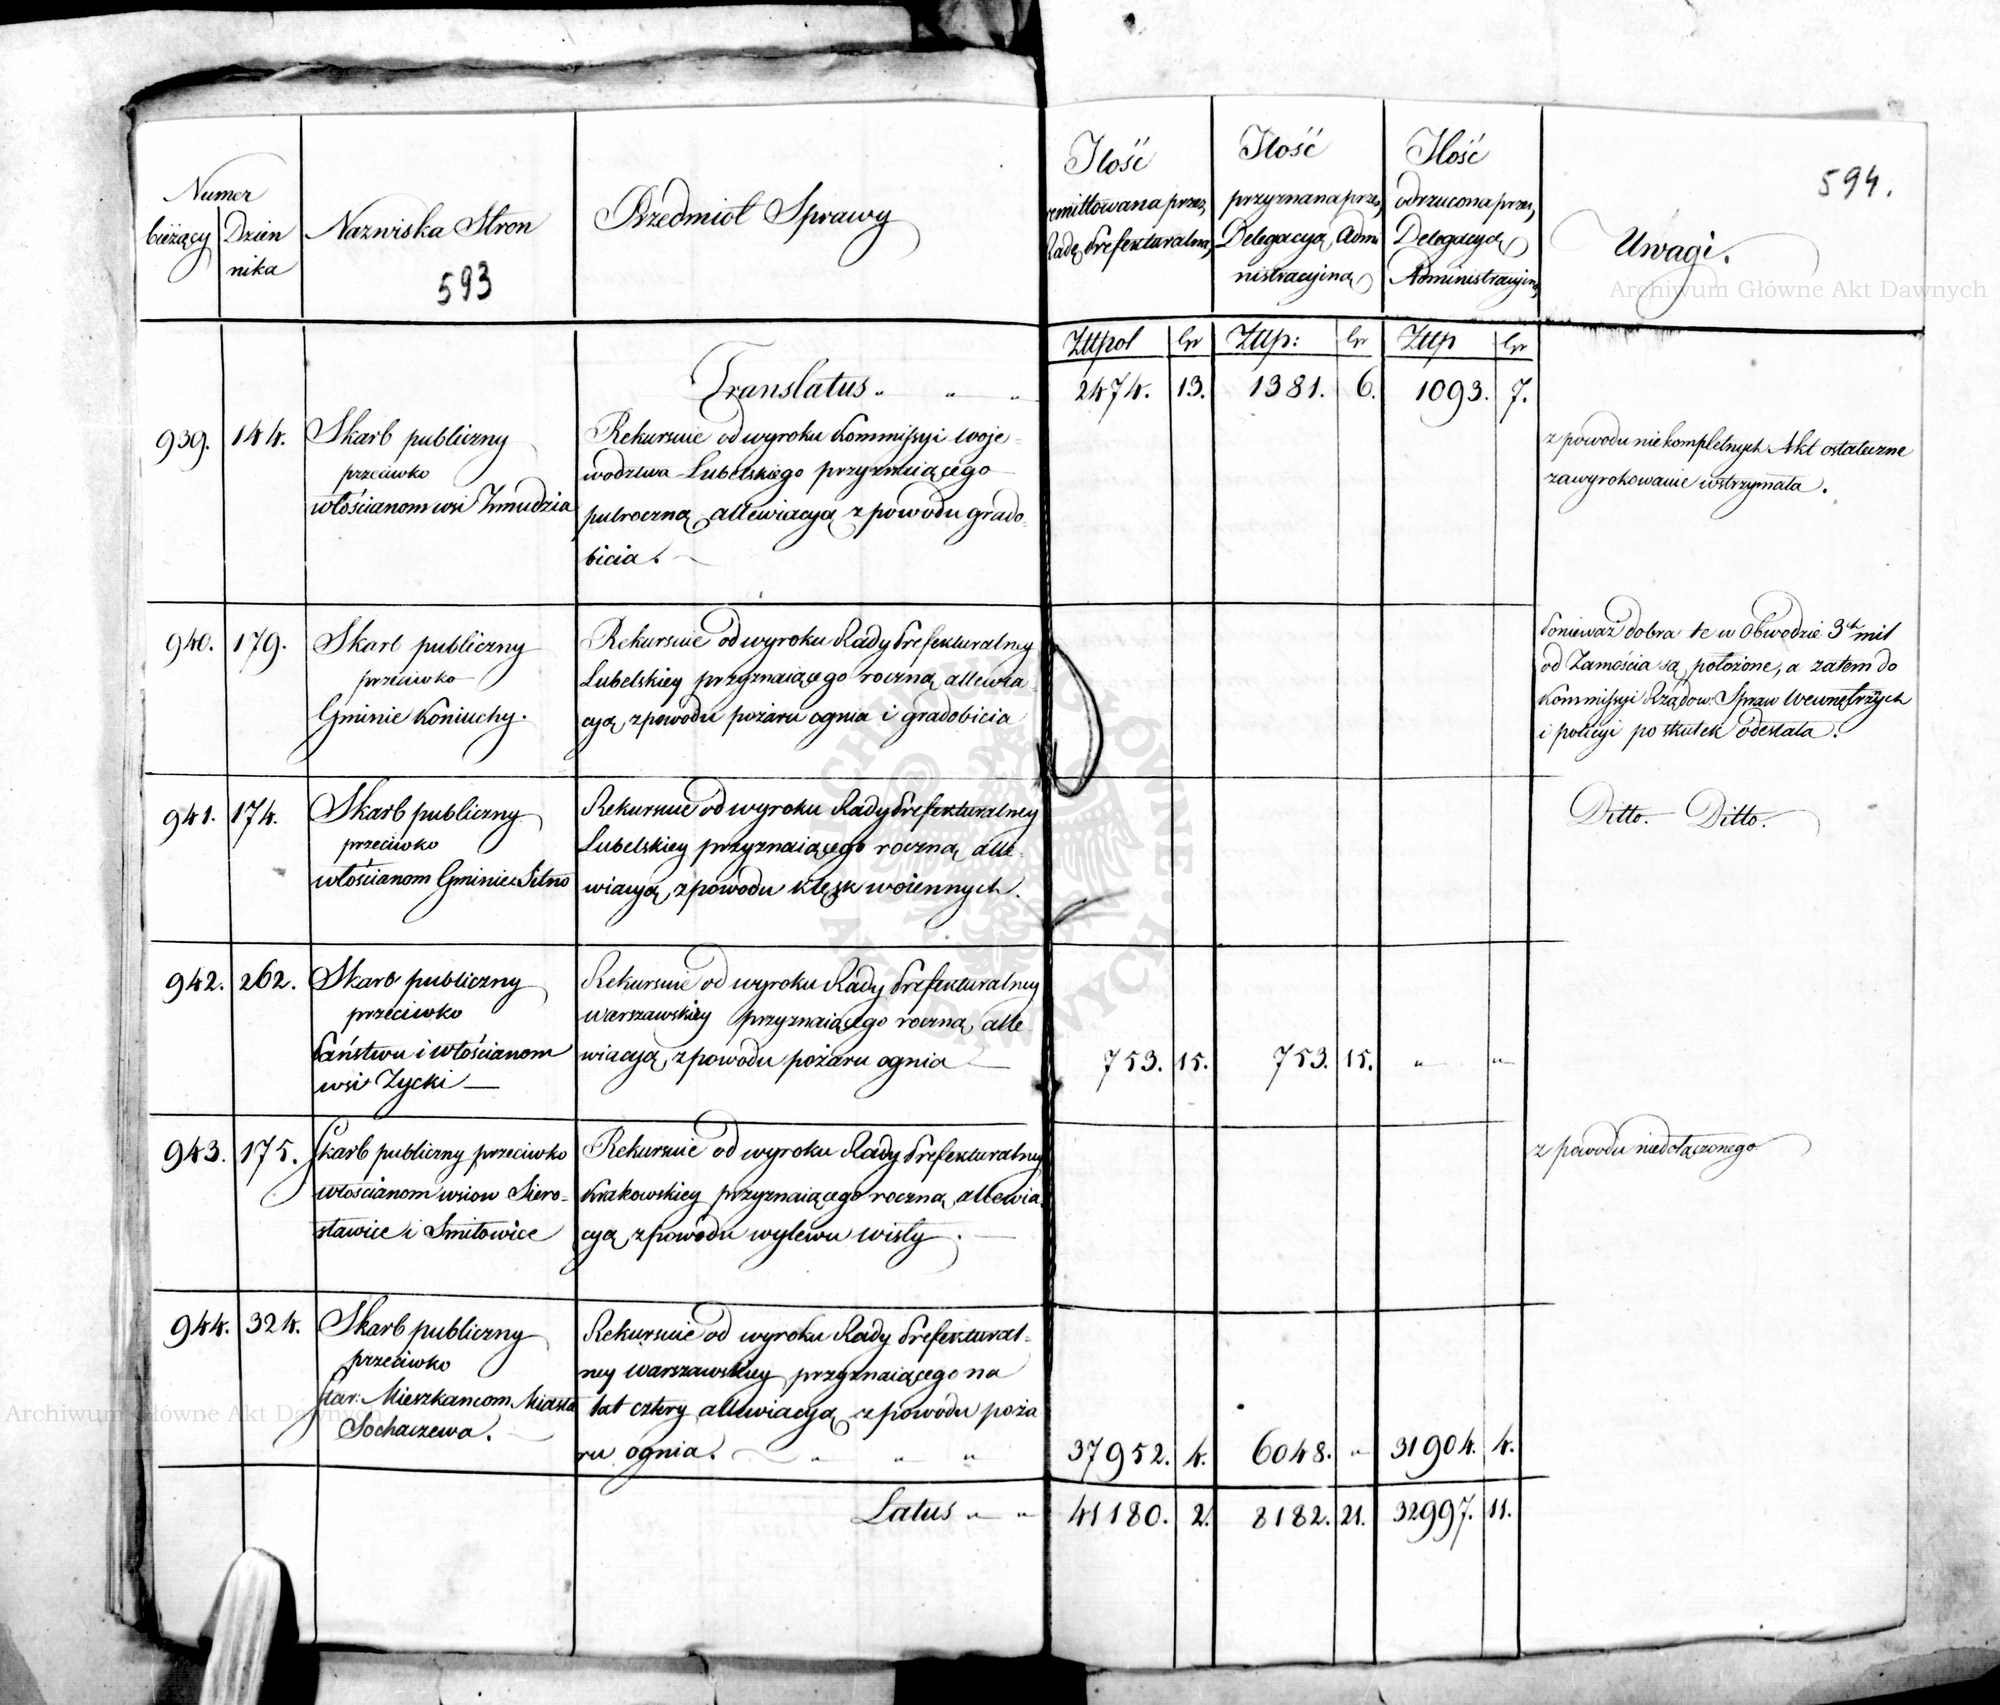 Numer
bieżący
Dzien
nika
Nazwiska Stron
593
Przedmiot Sprawy
Ilość
remittowana przez
Radę Prefekturalną
Ilość
przyznana przez
Delegacyą Admi
nistracyiną
Ilość
odrzucona przez
Delegacyą
Administracyiną
Uwagi.
594.
Złłpol gr Złłp: gr Złłp gr
Translatus „ „ „ 2474. 13. 1381. 6. 1093. 7.
939. 144.
Skarb publiczny
przeciwko
włościanom wsi Żmudzia
Rekursuie od wyroku Kommissyi Woje-
wodztwa Lubelskiego przyznaiącego
pułroczną allewiacyą z powodu grado-
bicia.
z powodu niekompletnych Akt ostateczne
zawyrokowanie wstrzymała.
940. 179.
Skarb publiczny
przeciwko
Gminie Koniuchy.
Rekursuie od wyroku Rady Prefekturalney
Lubelskiey przyznaiącego roczną allewia-
cyą z powodu pożaru ognia i gradobicia
Ponieważ dobra te w Obwodzie 3ch mil
od Zamościa są położone, a zatem do
Kommissyi Rządow. Spraw Wewnętrznych
i policyi po skutek odesłała.
941. 174.
Skarb publiczny
przeciwko
włościanom Gminie Sitno
Rekursuie od wyroku Rady Prefekturalney
Lubelskiey przyznaiącego roczną alle-
wiacyą z powodu klęsk woiennych.
Ditto. Ditto.
942. 262.
Skarb publiczny
przeciwko
Państwu i włościanom
wsi Zycki
Rekursuie od wyroku Rady Prefekturalney
Warszawskiey przyznaiącego roczną alle-
wiacyą z powodu pożaru ognia
753. 15. 753. 15. „ „
943. 175.
Skarb publiczny przeciwko
włościanom wsiow Siero-
sławice i Smiłowice
Rekursuie od wyroku Rady Prefekturalney
Krakowskiey przyznaiącego roczną allewia-
cyą z powodu wylewu wisły.
z powodu niedołączonego
944. 324.
Skarb publiczny
przeciwko
Star: Mieszkancom Miasta
Sochaczewa.
Rekursuie od wyroku Rady Prefektural-
ney Warszawskiey przyznaiącego na
lat cztery allewiacyą z powodu poża
ru ognia. „ „ „
37952. 4. 6048. „ 31904. 4.
Latus „ „ 41180. 2. 8182. 21. 32997. 11.
Archiwum Główne Akt Dawnych
Archiwum Główne Akt Dawnych
ARCHIWUM GŁÓWNE AKT DAWNYCH